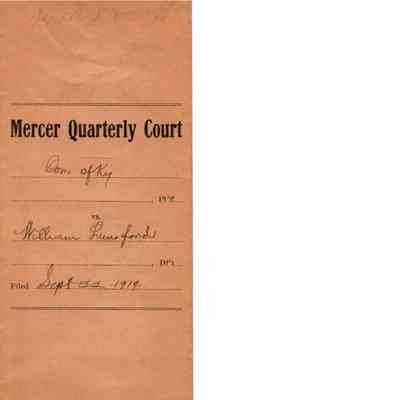 Mercer Quarterly Court
Com of Ky
, Pl'ff.
vs.
William Lunsford
, Df't.
Filed Sept 22 1919